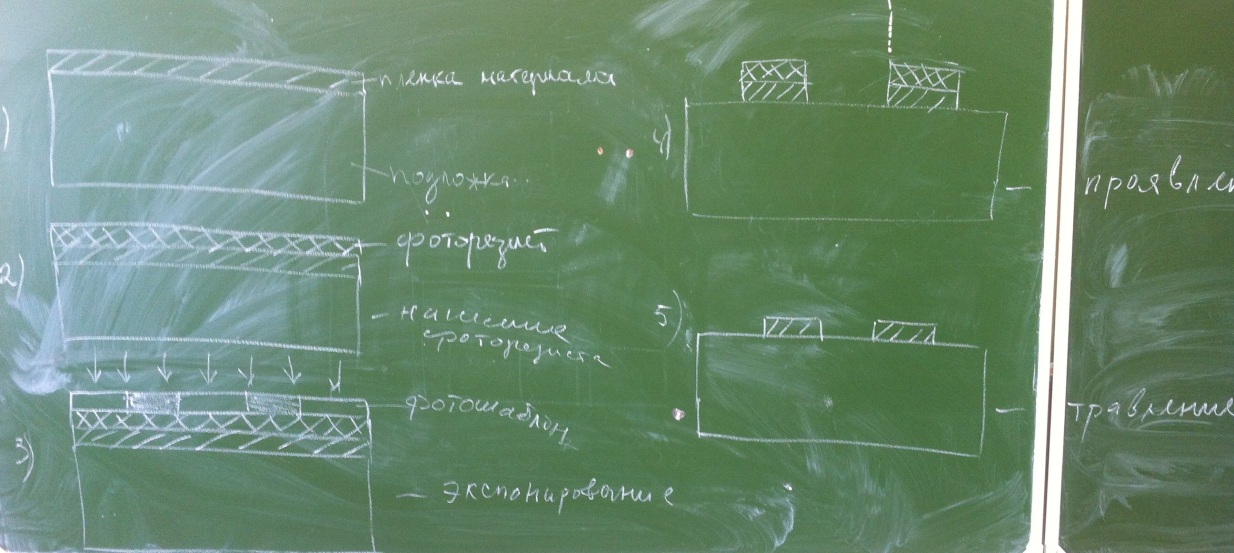 1)
пленка материала
подложка
2)
фоторезист
нанесение
фоторезиста
фотошаблон
3)
экспонирование
4)
проявлен
5)
травление